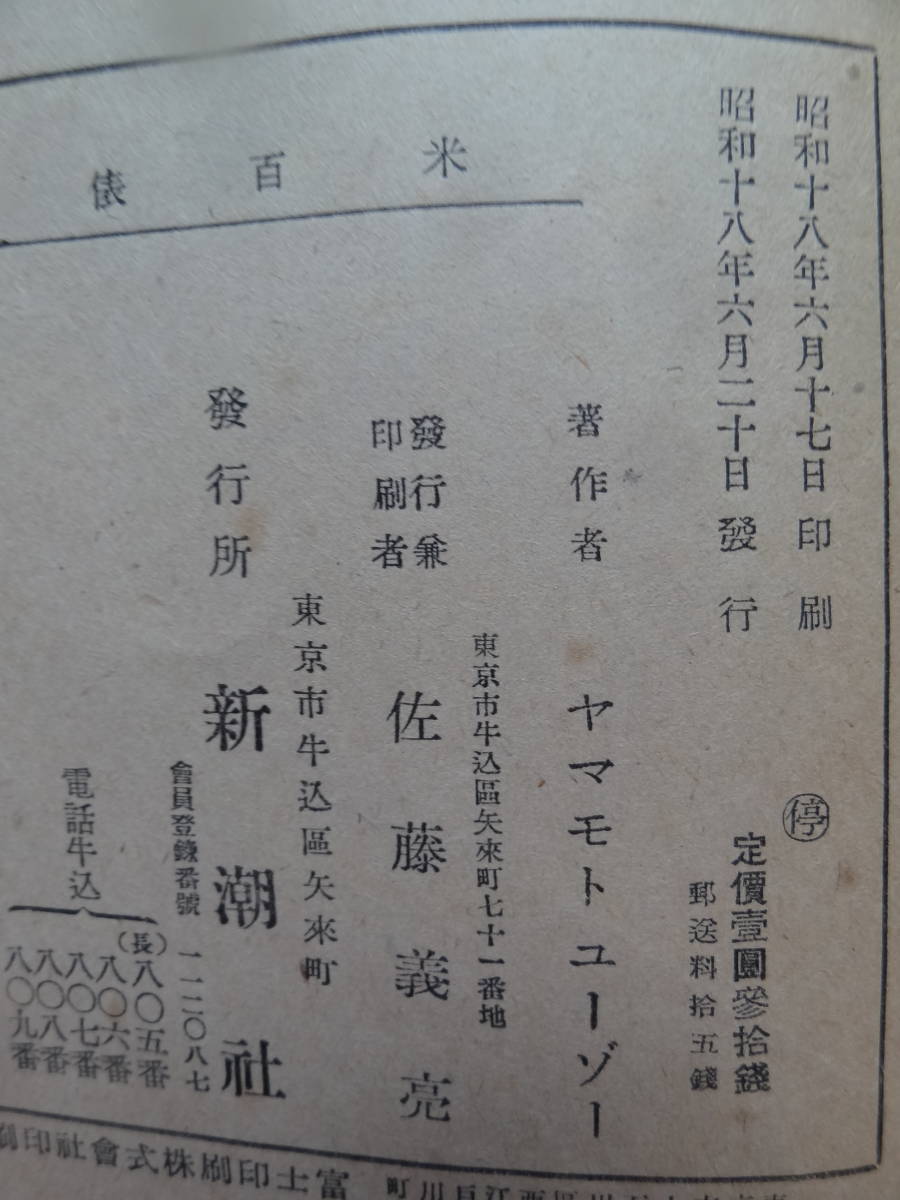 米百俵
昭和十八年六月十七日印刷
昭和十八年六月二十日發行
停
定價壹圓參拾錢
郵送料拾五錢
著作者 ヤマモトユーゾー
東京市牛込區矢來町七十一番地
發行兼
印刷者 佐藤義亮
東京市牛込區矢來町
發行所 新潮社
會員登錄番號 一一二〇八七
電話牛込
(長)八〇五番
八〇六番
八〇七番
八〇八番
八〇九番
富士印刷株式會社印刷